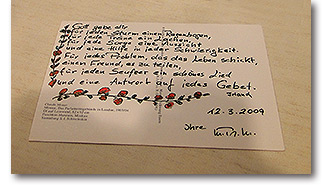 Gott gebe dir
für jeden Sturm einen Regenbogen,
für jede Träne ein Lachen,
für jede Sorge eine Aussicht
und eine Hilfe in jeder Schwierigkeit.
Für jedes Problem, das das Leben schickt,
einen Freund, es zu teilen,
für jeden Seufzer ein schönes Lied
und eine Antwort auf jedes Gebet.
Irland
12.3.2009
Ihre
Claude Monet